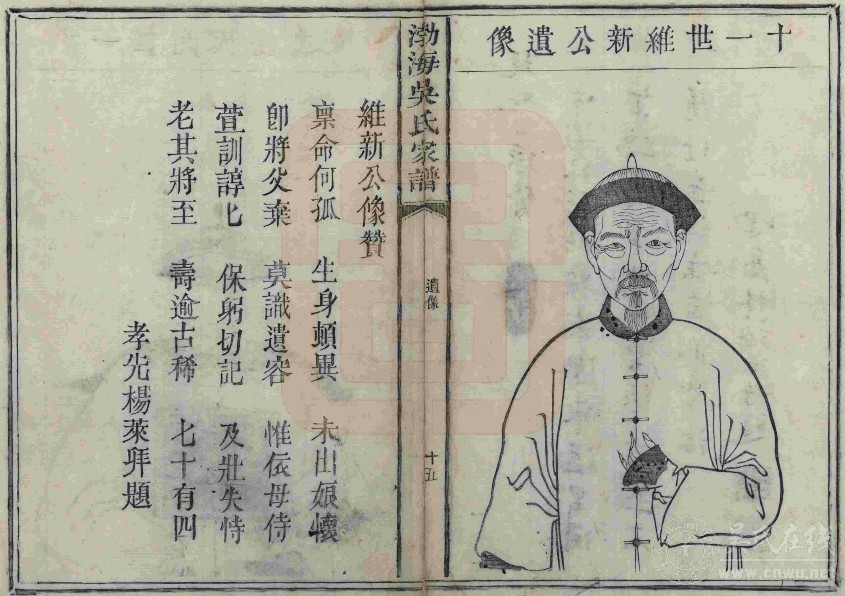 十一世維新公遺像
渤海吳氏家譜
遺像
十五
維新公像贊
禀命何孤 生身頓異 未出娘懷
即將父棄 莫識遺容 惟依母侍
萱訓諄匕 保躬切記 及壯失恃
老其將至 壽逾古稀 七十有四
孝先楊萊拜題
吴氏在线
www.cnwu.net